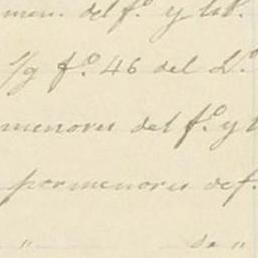 men. del fº. y lib.
S/g fº. 46 del Lº.
menores del fº. y l
pormenores de f.
" de "